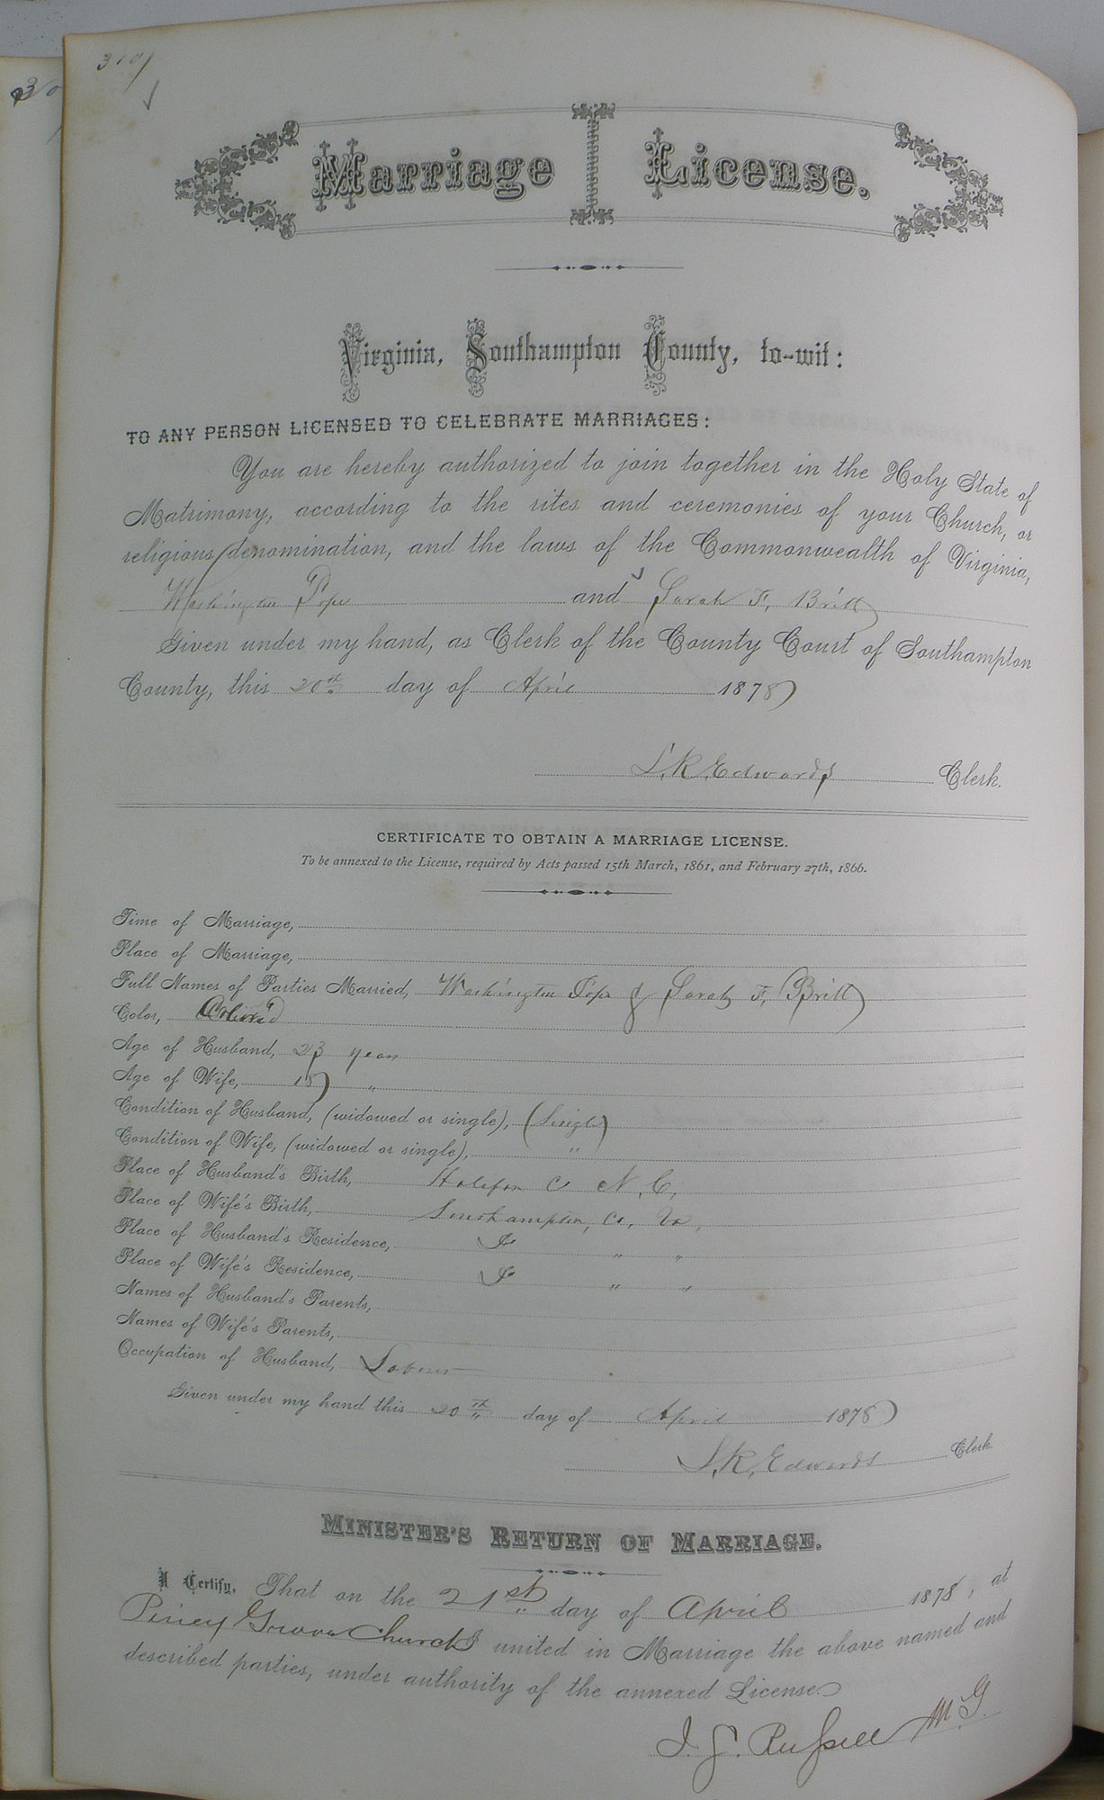 310
Marriage License.
Virginia, Southampton County, to-wit:
TO ANY PERSON LICENSED TO CELEBRATE MARRIAGES:
You are hereby authorized to join together in the Holy State of
Matrimony, according to the rites and ceremonies of your Church, or
religious denomination, and the laws of the Commonwealth of Virginia,
Washington Pope and Sarah F. Britt
Given under my hand, as Clerk of the County Court of Southampton
County, this 20th day of April 1878
L. R. Edwards Clerk.
CERTIFICATE TO OBTAIN A MARRIAGE LICENSE.
To be annexed to the License, required by Acts passed 15th March, 1861, and February 27th, 1866.
Time of Marriage,
Place of Marriage,
Full Names of Parties Married, Washington Pope & Sarah F. Britt
Color, Colored
Age of Husband, 23 years
Age of Wife, "
Condition of Husband, (widowed or single), (Single)
Condition of Wife, (widowed or single), "
Place of Husband's Birth, Halifax Co N. C.
Place of Wife's Birth, Southampton, Co, Va,
Place of Husband's Residence, " "
Place of Wife's Residence, " "
Names of Husband's Parents,
Names of Wife's Parents,
Occupation of Husband, Laborer
Given under my hand this 20th day of April 1878
L. R. Edwards Clerk
MINISTER'S RETURN OF MARRIAGE.
I Certify, That on the 21st day of April 1878, at
Piney Grove Church I united in Marriage the above named and
described parties, under authority of the annexed License.
J. G. Russell M. G.